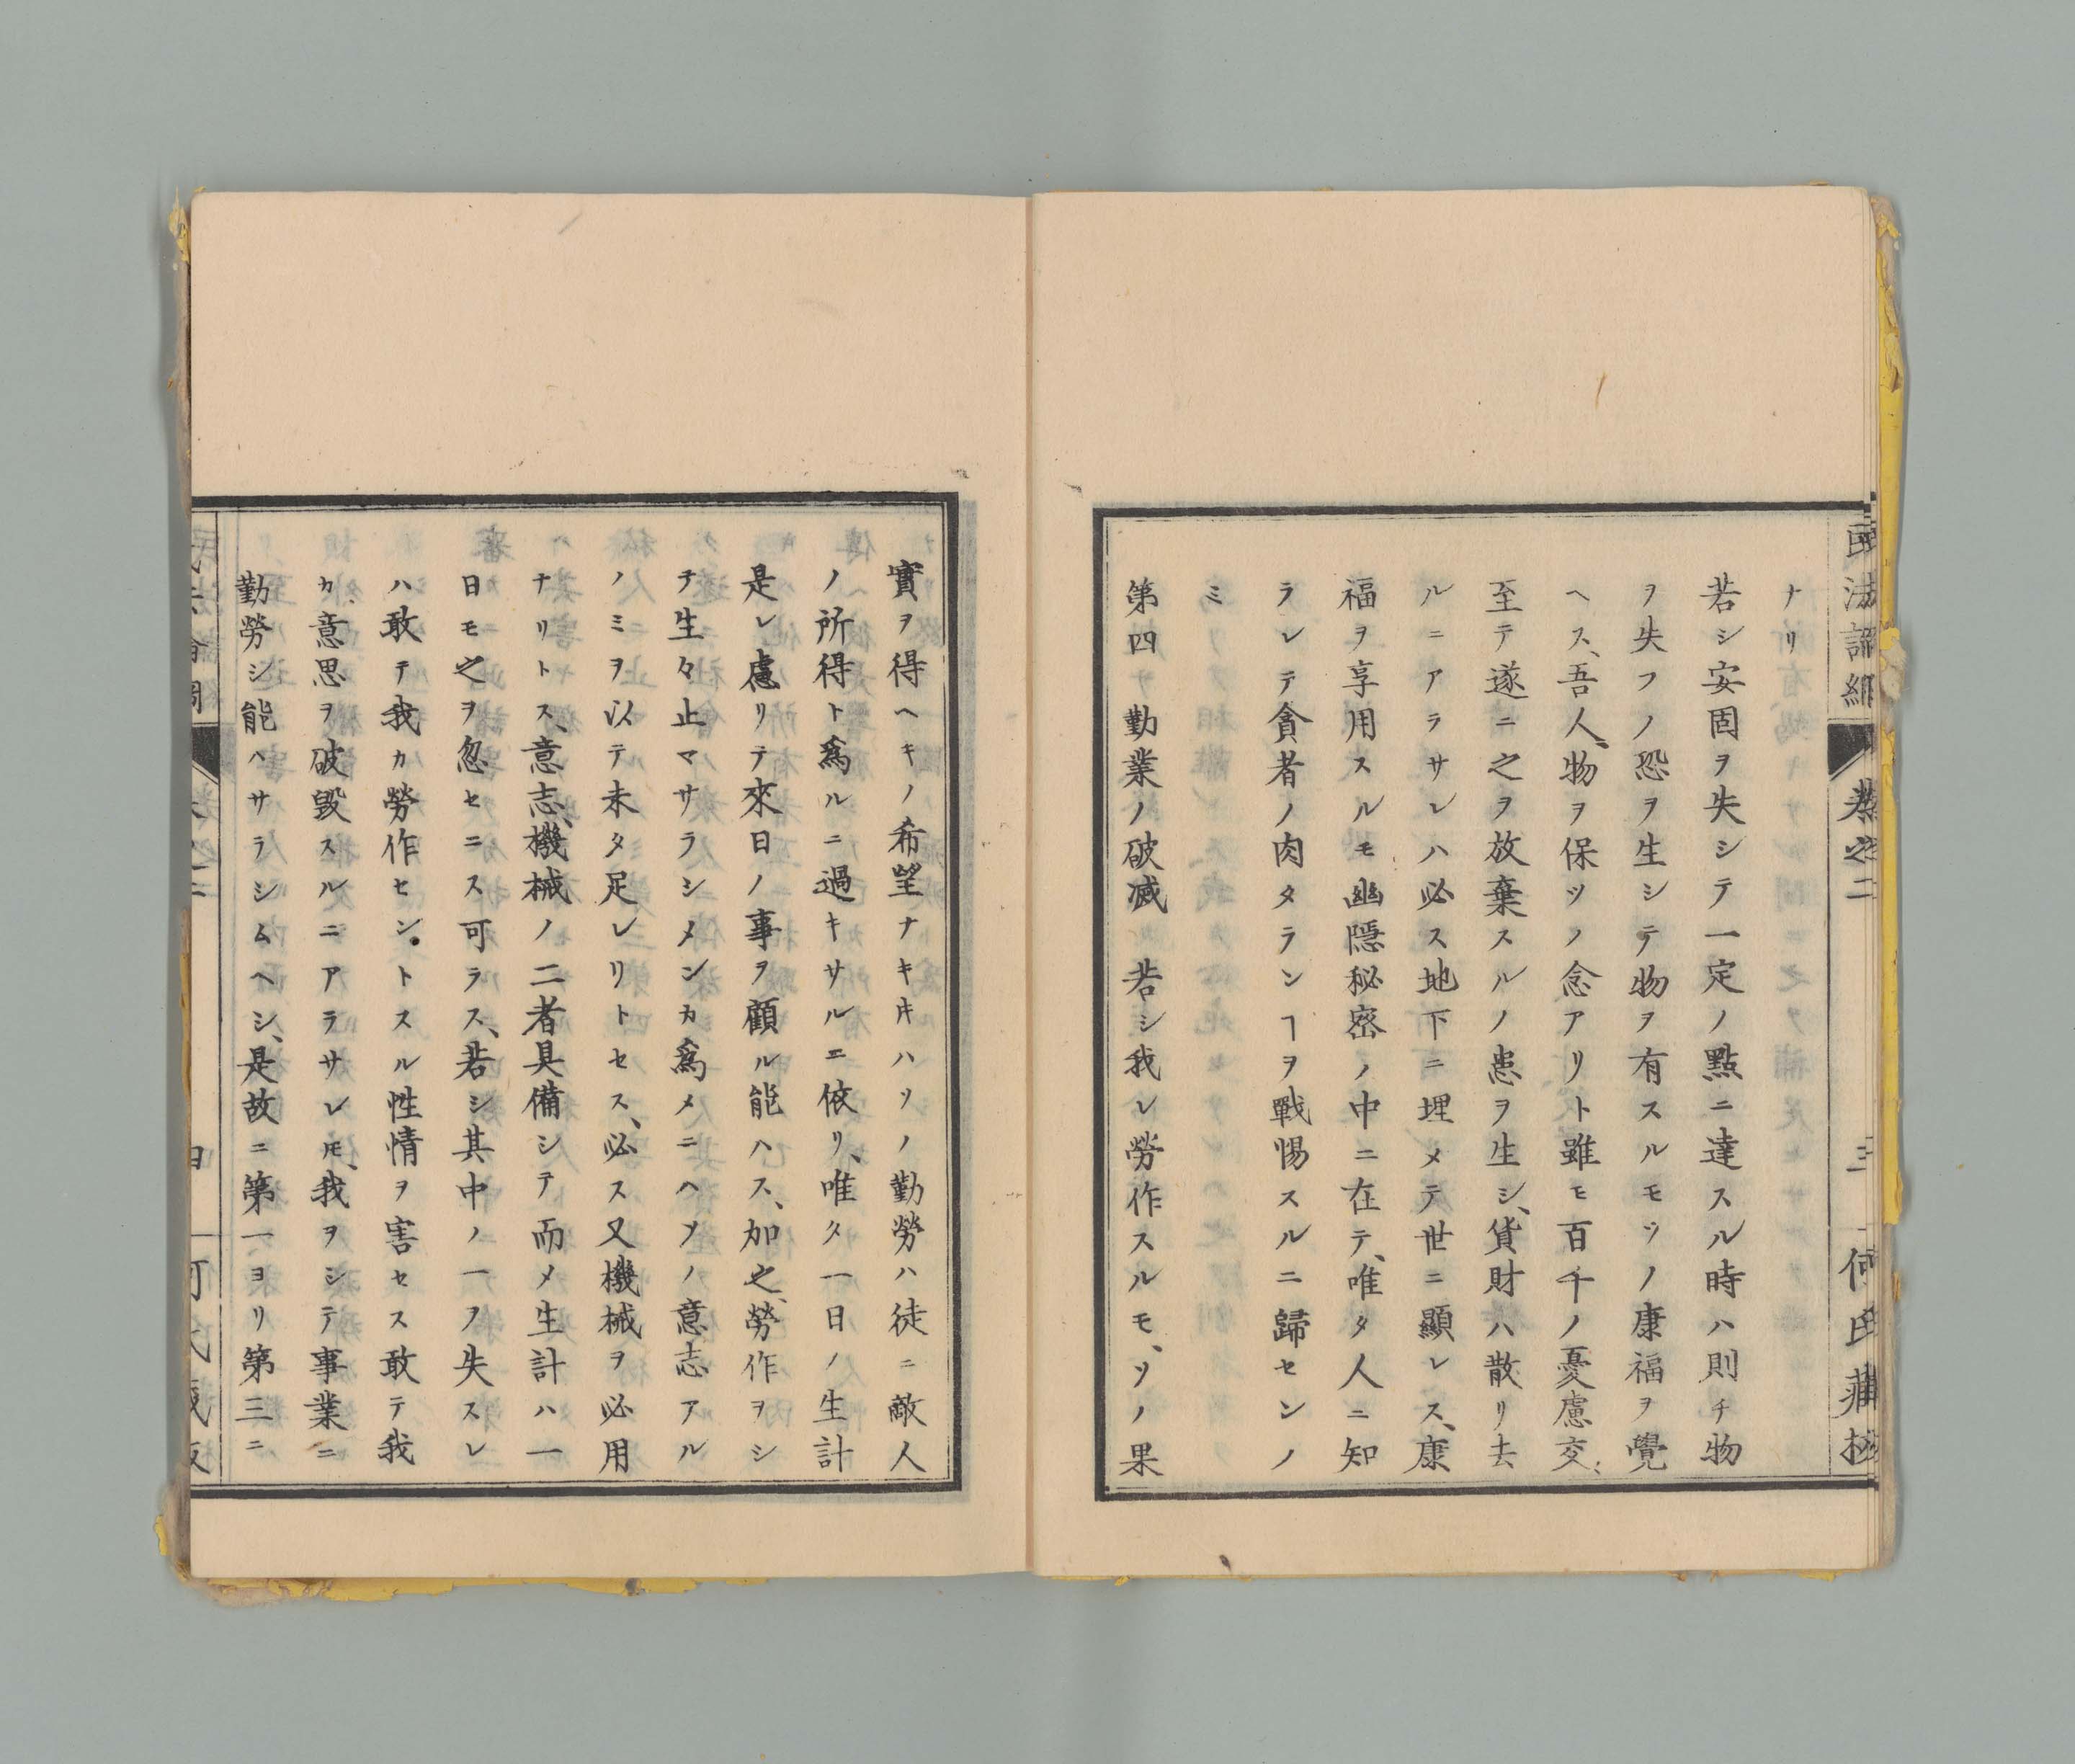 民法論綱
卷之二
三
何氏藏板
ナリ
若シ安固ヲ失シテ一定ノ點ニ達スル時ハ則チ物
ヲ失フノ恐ヲ生シテ物ヲ有スルモツノ康福ヲ覺
ヘス、吾人、物ヲ保ツノ念アリト雖モ百千ノ憂慮交〻
至テ遂ニ之ヲ放棄スルノ患ヲ生シ、貨財ハ散リ去
ルニアラサレハ必ス地下ニ埋メテ世ニ顯レス、康
福ヲ享用スルモ幽隱秘密ノ中ニ在テ、唯タ人ニ知
ラレテ貪者ノ肉タランヿヲ戰惕スルニ歸センノ
ミ
第四 勤業ノ破滅 若シ我レ勞作スルモ、ソノ果
實ヲ得ヘキノ希望ナキキハソノ勤勞ハ徒ニ敵人
ノ所得ト爲ルニ過キサルニ依リ、唯タ一日ノ生計
是レ慮リテ來日ノ事ヲ顧ル能ハス、加之、勞作ヲシ
テ生々止マサラシメンカ爲メニハソノ意志アル
ノミヲ以テ未タ足レリトセス、必ス又機械ヲ必用
ナリトス、意志、機械ノ二者具備シテ而メ生計ハ一
日モ之ヲ忽セニス可ラス、若シ其中ノ一ヲ失スレ
ハ敢テ我カ勞作セン。トスル性情ヲ害セス敢テ我
カ意思ヲ破毀スルニアラサレㇳモ、我ヲシテ事業ニ
勤勞シ能ハサラシムヘシ、是故ニ第一ヨリ第三ニ
四